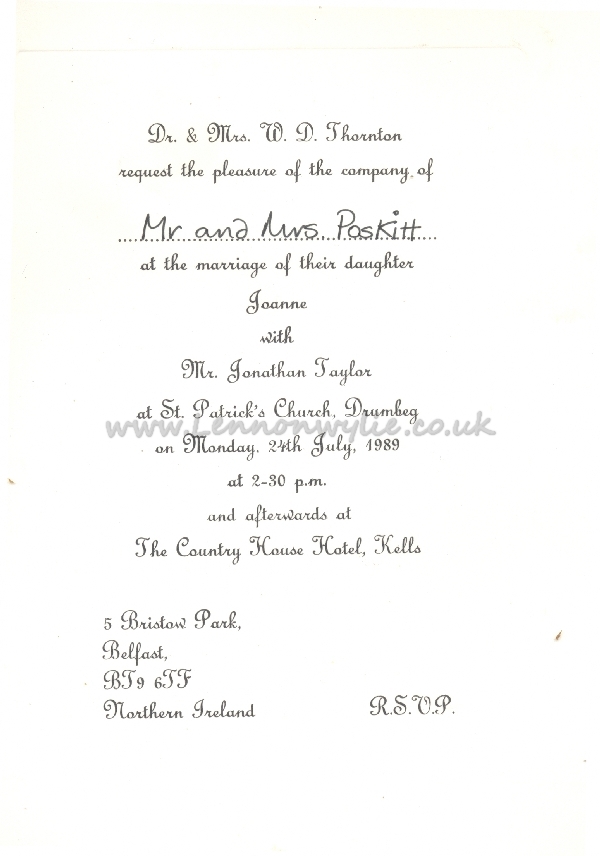 Dr. & Mrs. W. D. Thornton
request the pleasure of the company of
Mr and Mrs. Poskitt
at the marriage of their daughter
Joanne
with
Mr. Jonathan Taylor
at St. Patrick's Church, Drumbeg
www.Lennonwylie.co.uk
on Monday, 24th July, 1989
at 2-30 p.m.
and afterwards at
The Country House Hotel, Kells
5 Bristow Park,
Belfast,
BT9 6TF
Northern Ireland
R.S.V.P.